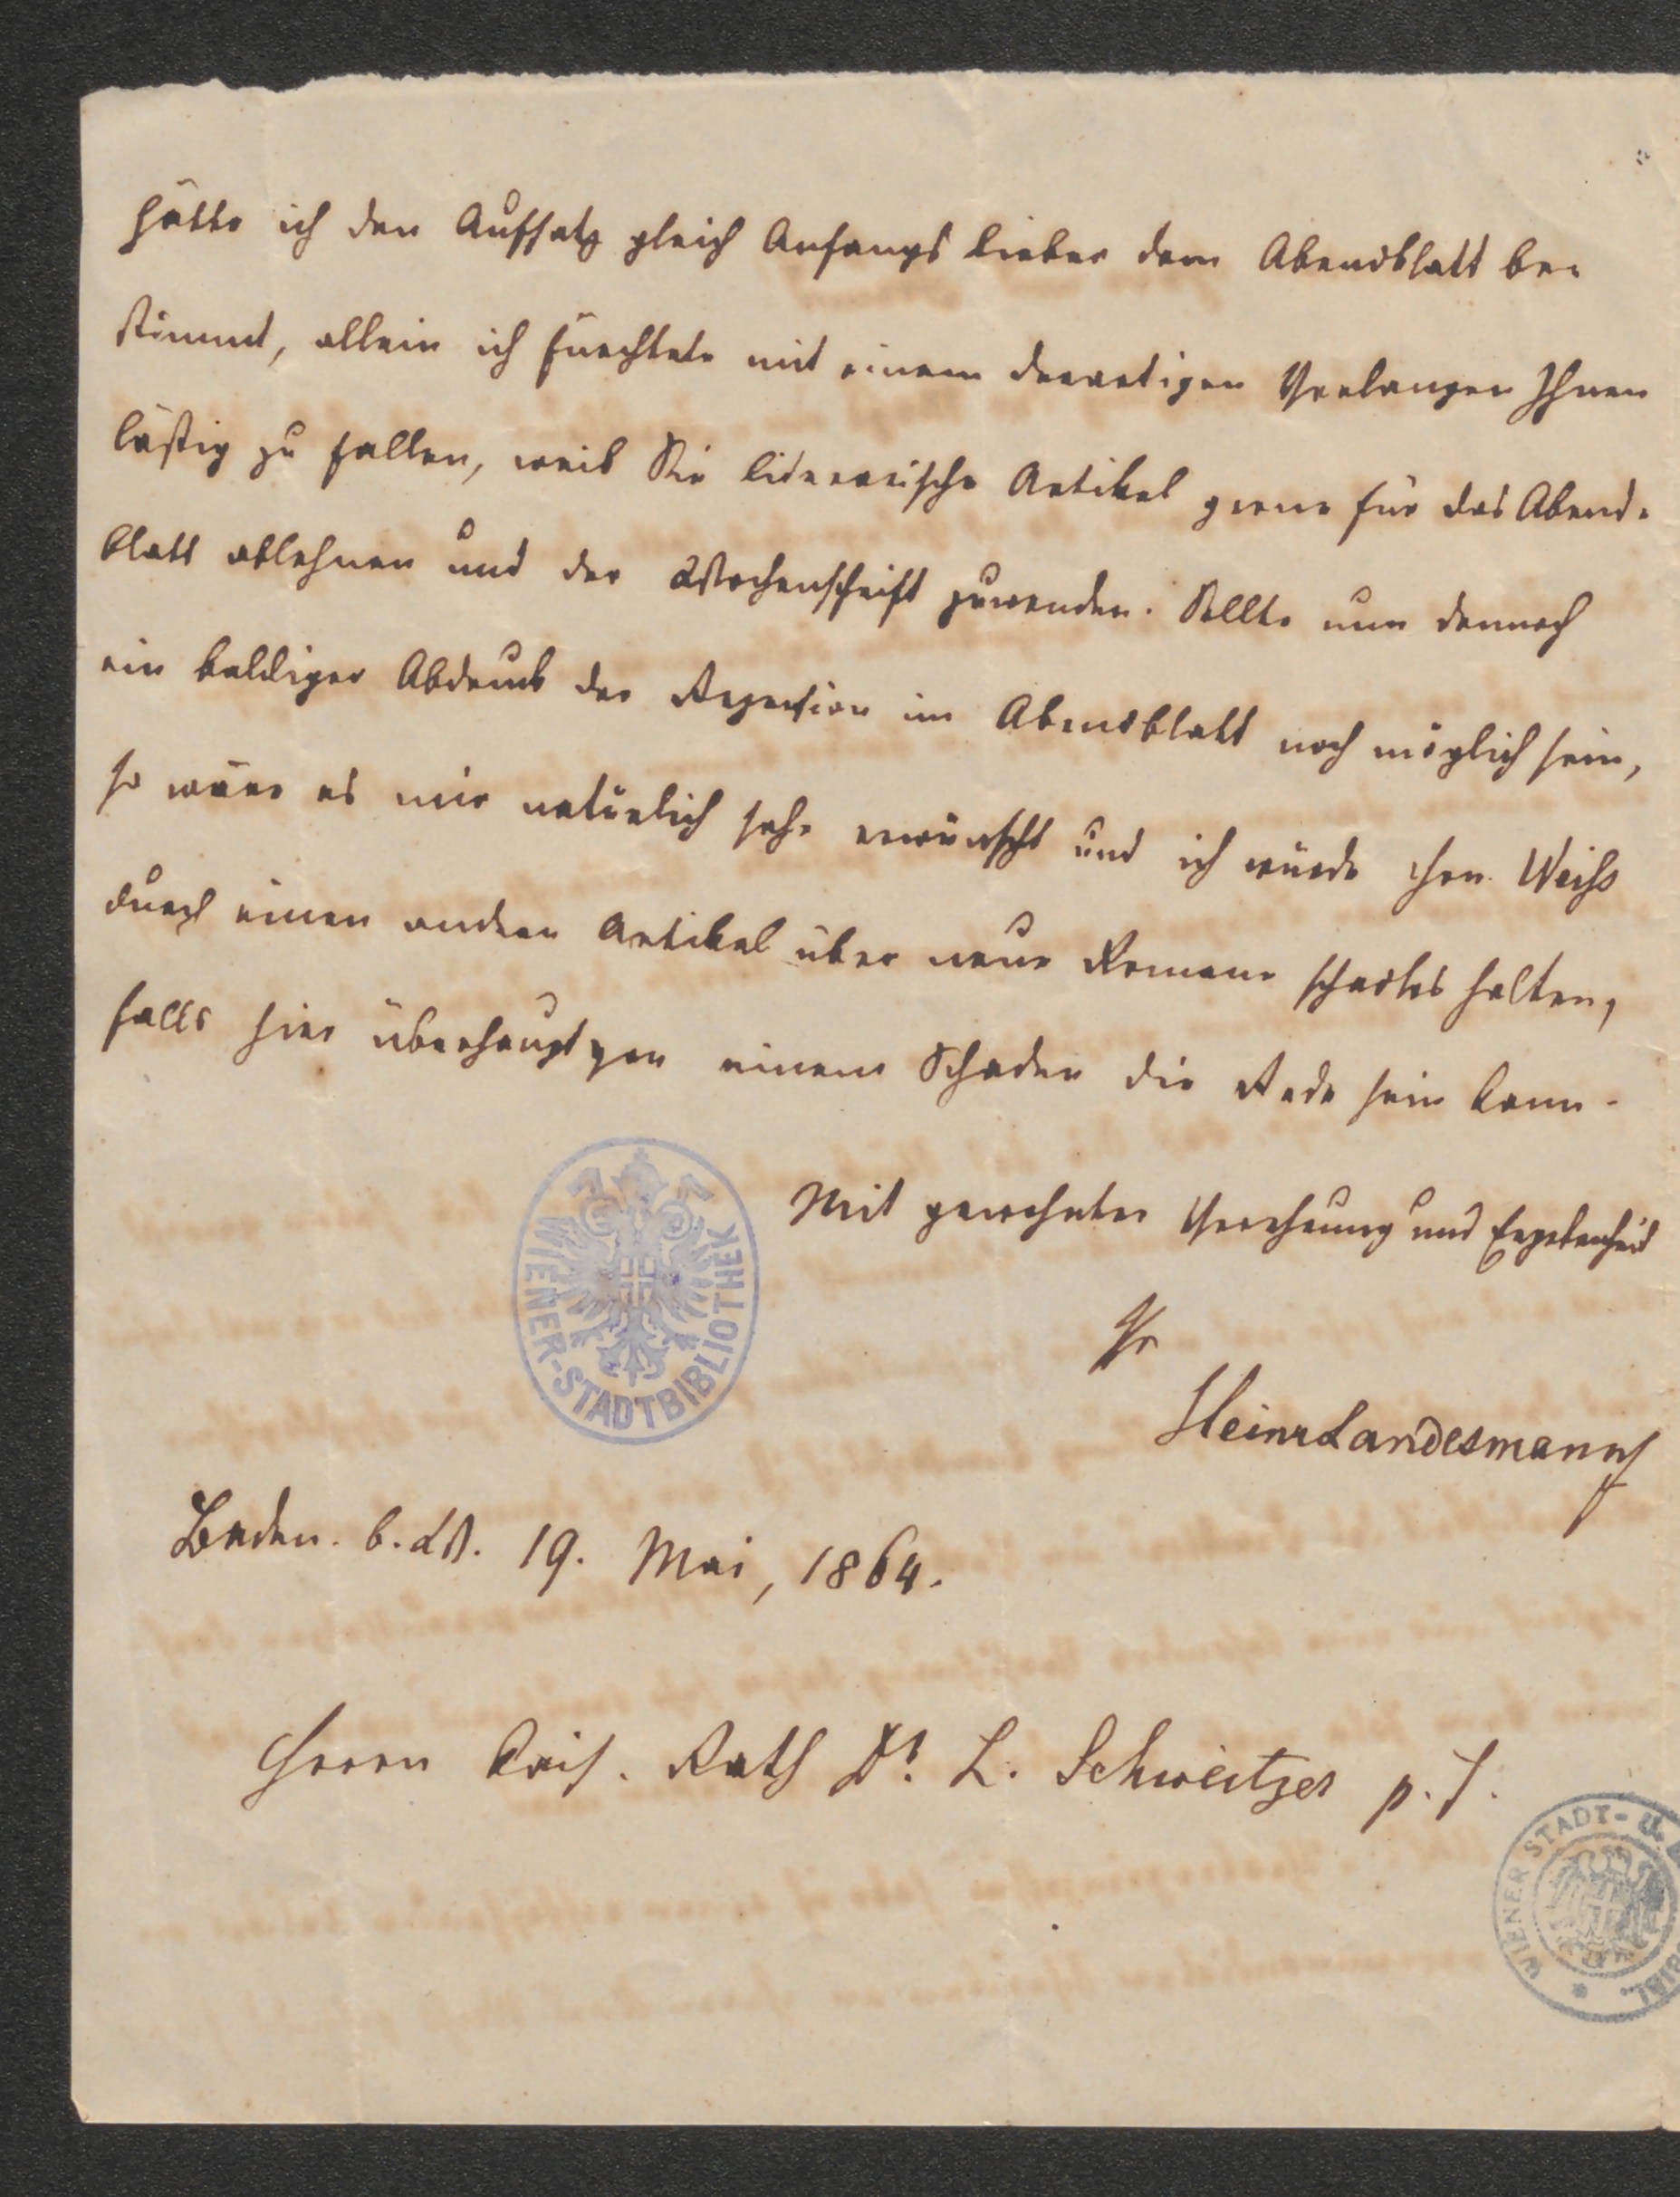 hätte ich den Aufsatz gleich Anfangs lieber dem Abendblatt be-
stimmt, allein ich fürchtete mit einem derartigen Verlangen Ihnen
lästig zu fallen, weil Sie literarische Artikel gerne für das Abend-
blatt ablehnen und der Wochenschrift zuwenden. Sollte nun dennoch
ein baldiger Abdruck der Rezension im Abendblatt noch möglich sein,
so wäre es mir natürlich sehr erwünscht und ich würde Hrn. Weiß
durch einen andern Artikel über neue Romane schadlos halten,
falls hier überhaupt von einem Schaden die Rede sein kann.
Mit gewohnter Verehrung und Ergebenheit
Ihr
Heinr Landesmann
Baden. b. W. 19. Mai, 1864.
Herrn Kais. Rath Dr. L. Schweitzer p. t.
WIENER-STADTBIBLIOTHEK
WIENER STADT- U.
BIBL.